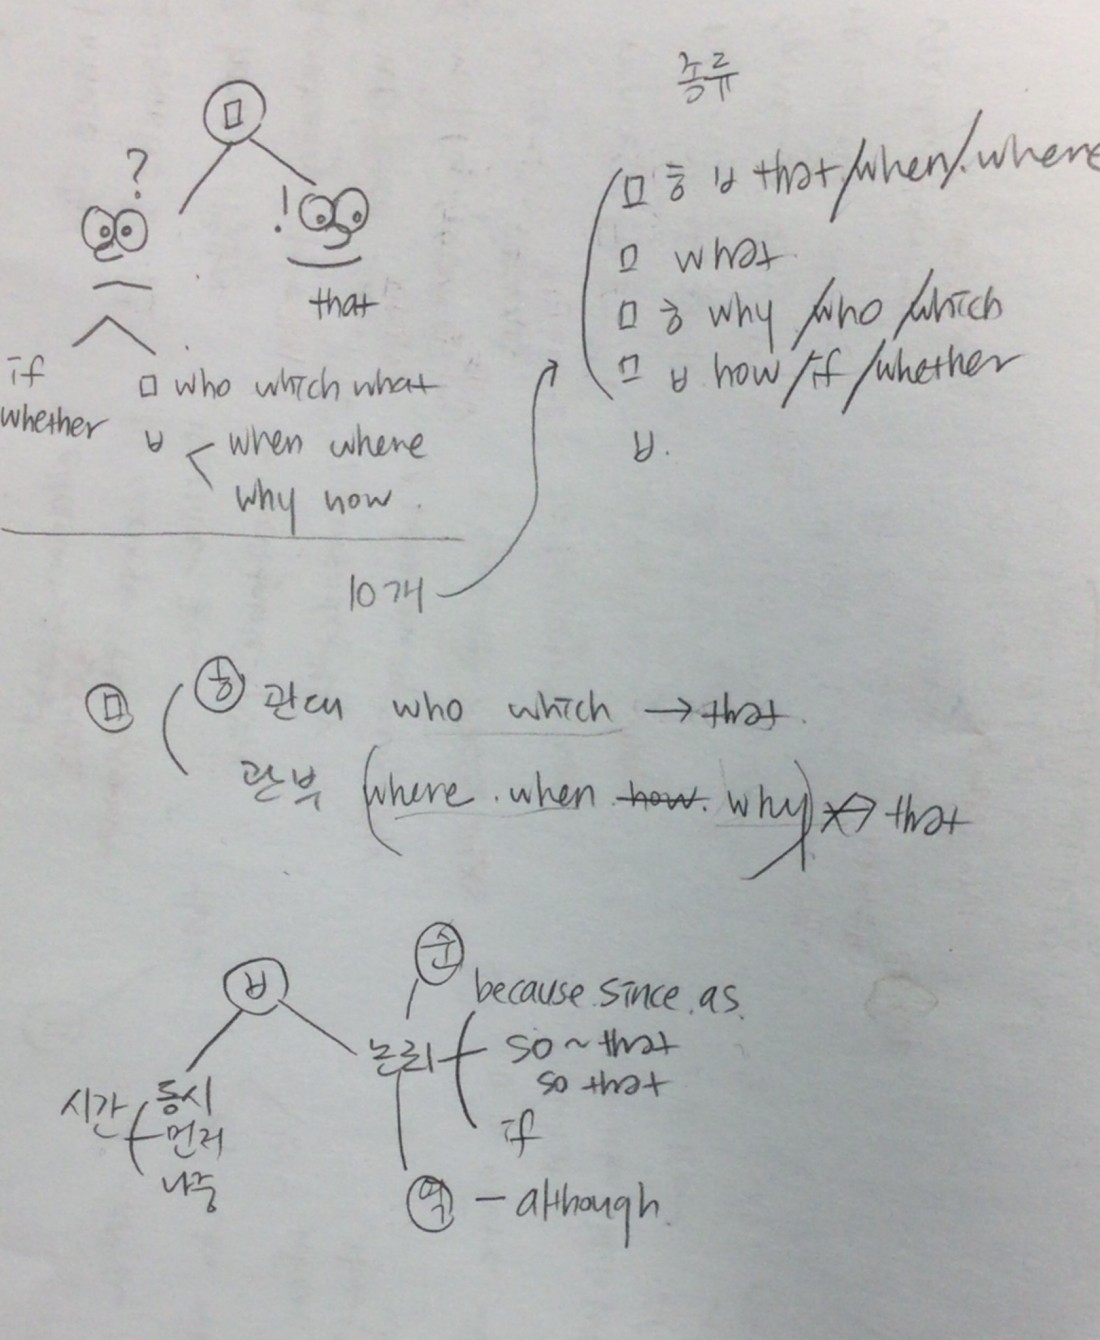 ㅁ
?
!
that
if
whether
ㅁ who which what
ㅂ when where
why how.
10개
종류
ㅁ ㅎ ㅂ that/when/.where
ㅁ what
ㅁ ㅎ why /who /which
ㅁ ㅂ how /if /whether
ㅂ.
ㅁ
ㅎ 관대 who which → that.
관부 (where. when how. why) ↔ that
ㅂ
시간
동시
먼저
나중
논리
순
because. since. as.
so ~ that
so that
if
역 - although.